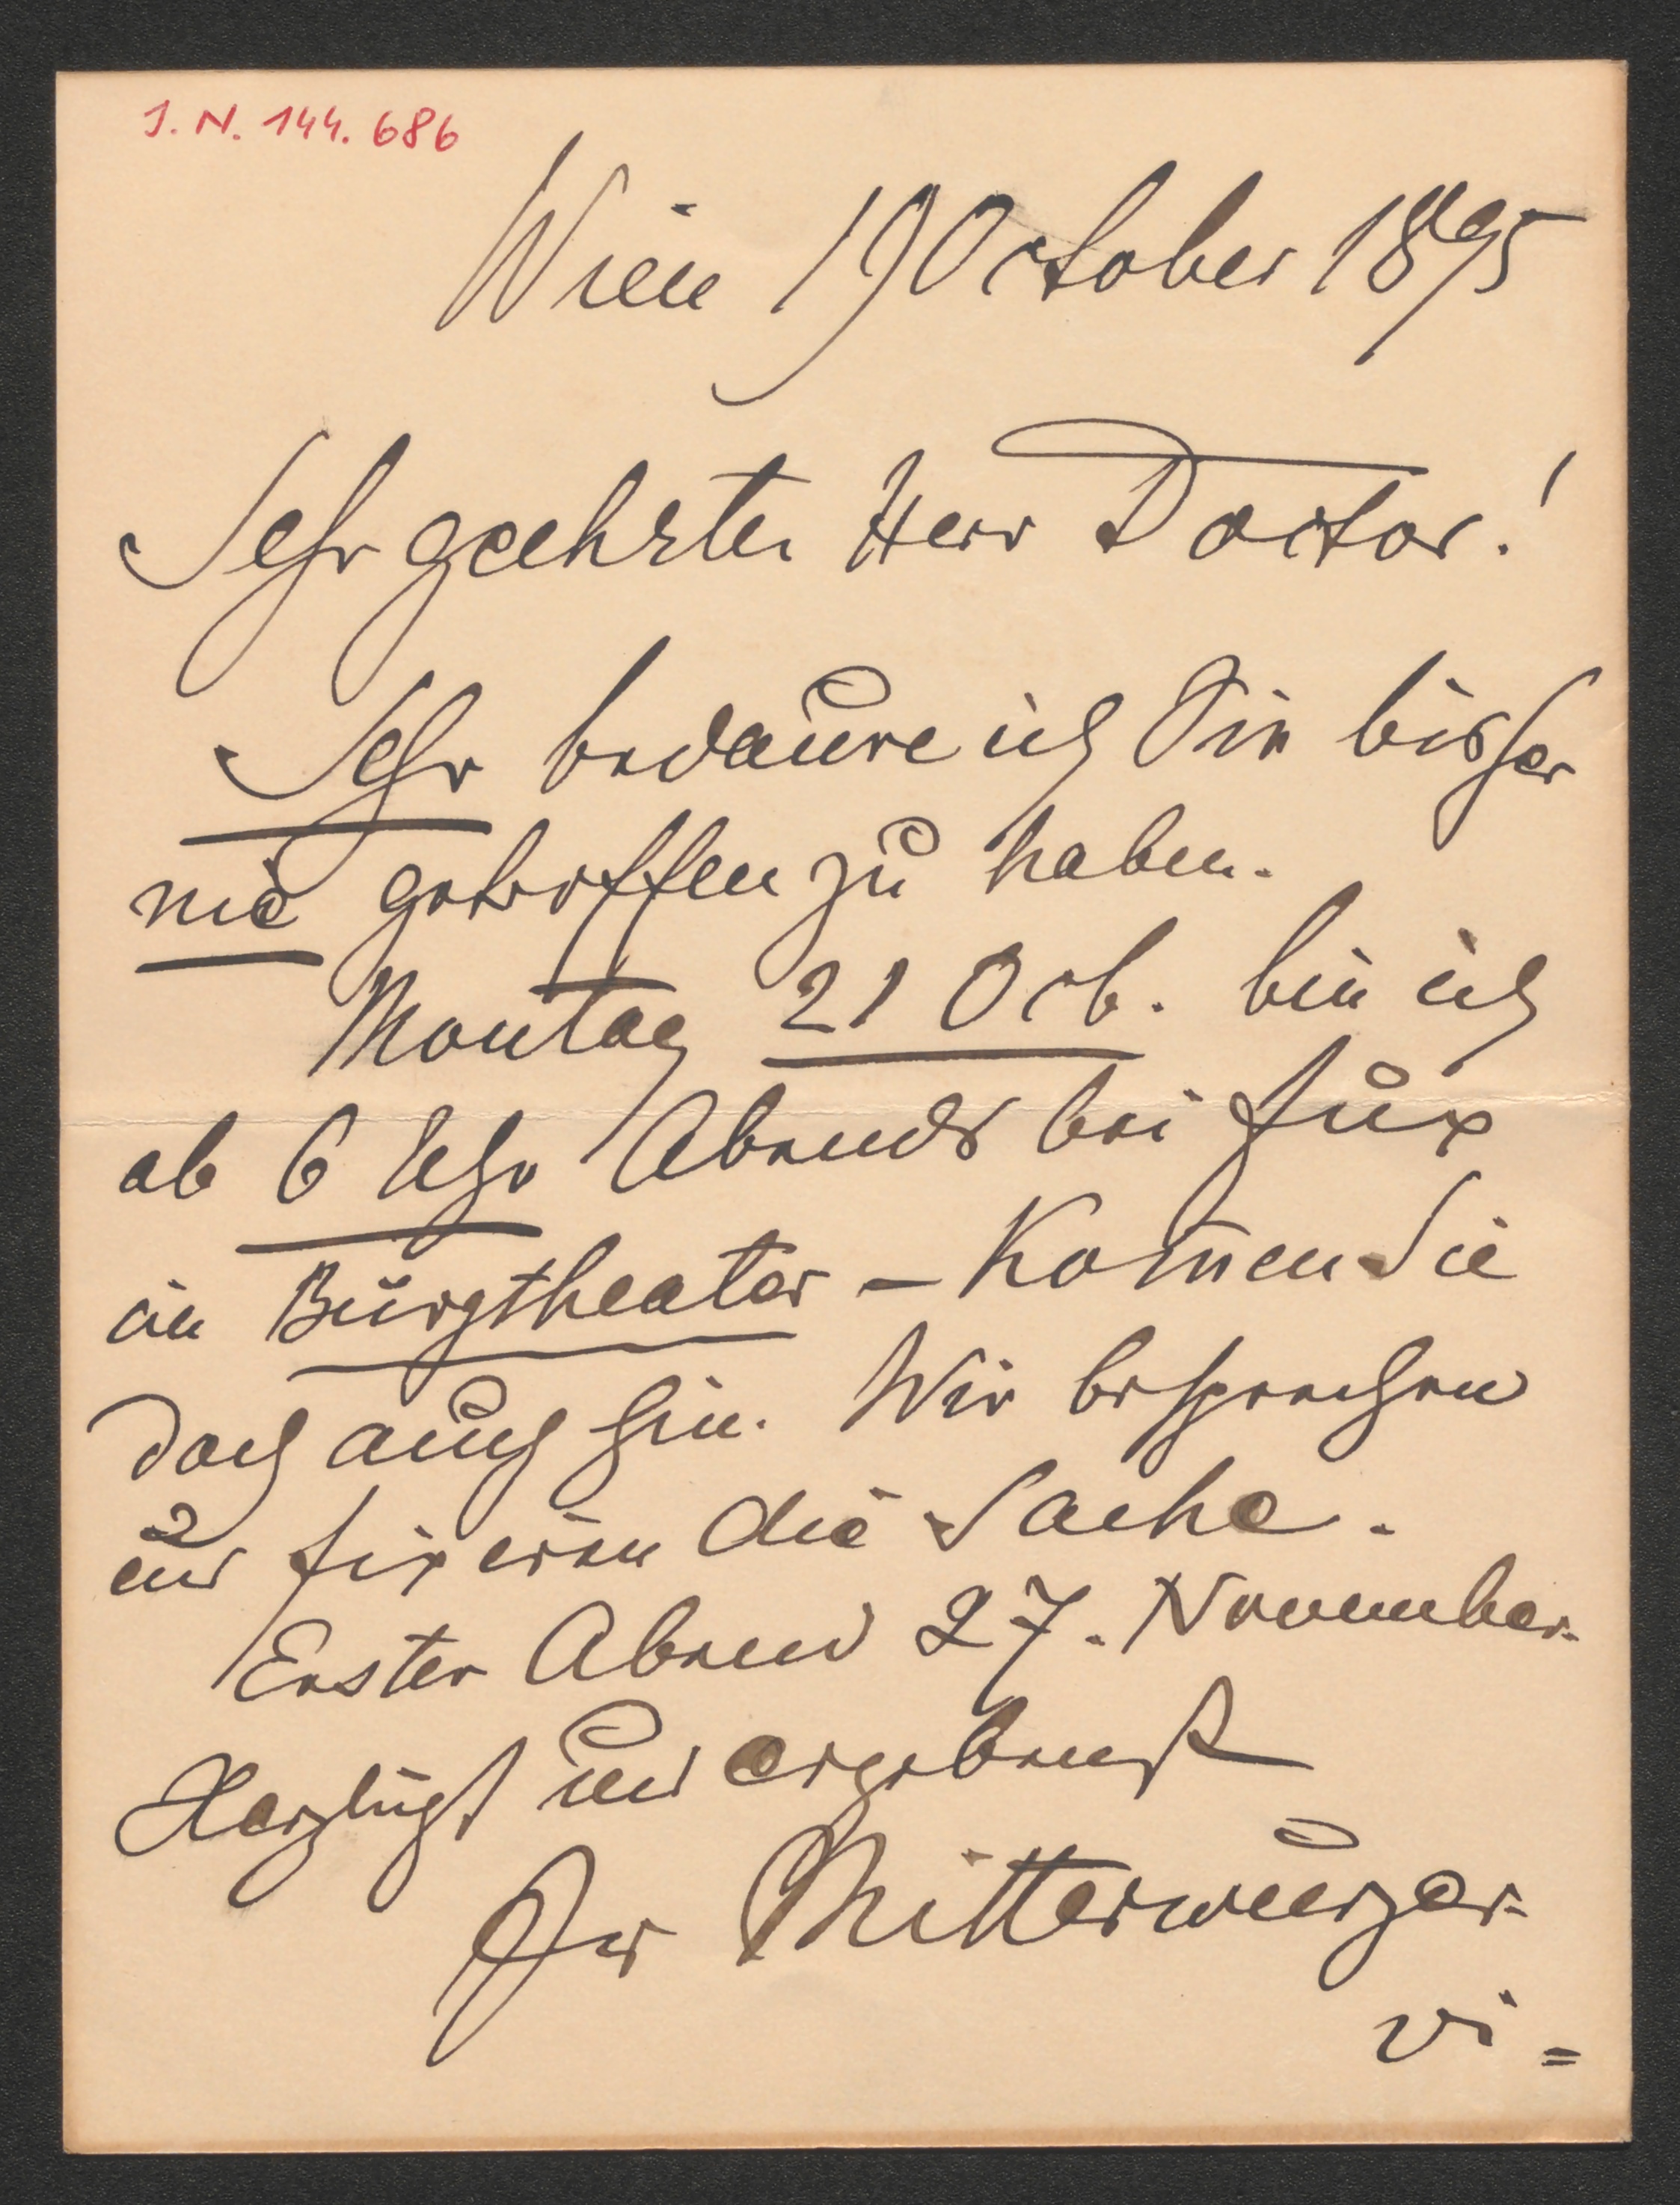 J. N. 144.686
Wien 19 October 1895
Sehr geehrter Herr Doctor!
Sehr bedaure ich Sie bisher
nie getroffen zu haben.
Montag 21 Octb. bin ich
ab 6 Uhr Abends bei Fux
im Burgtheater – Kom̄en Sie
doch auch hin. Wir besprechen
und fixieren die Sache.
Erster Abend 27. November.
Herzlichst und ergebenst
Ihr Mitterwurzer.